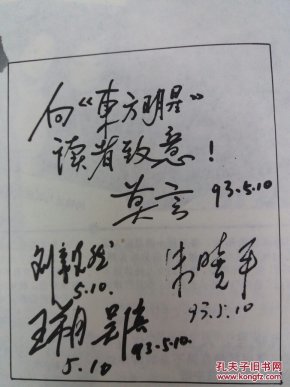 向“東方明星”
读者致意!
莫言 93.5.10
刘
5.10.
朱晓平
93.5.10
王朔
5.10
93.5.10.
孔夫子旧书网